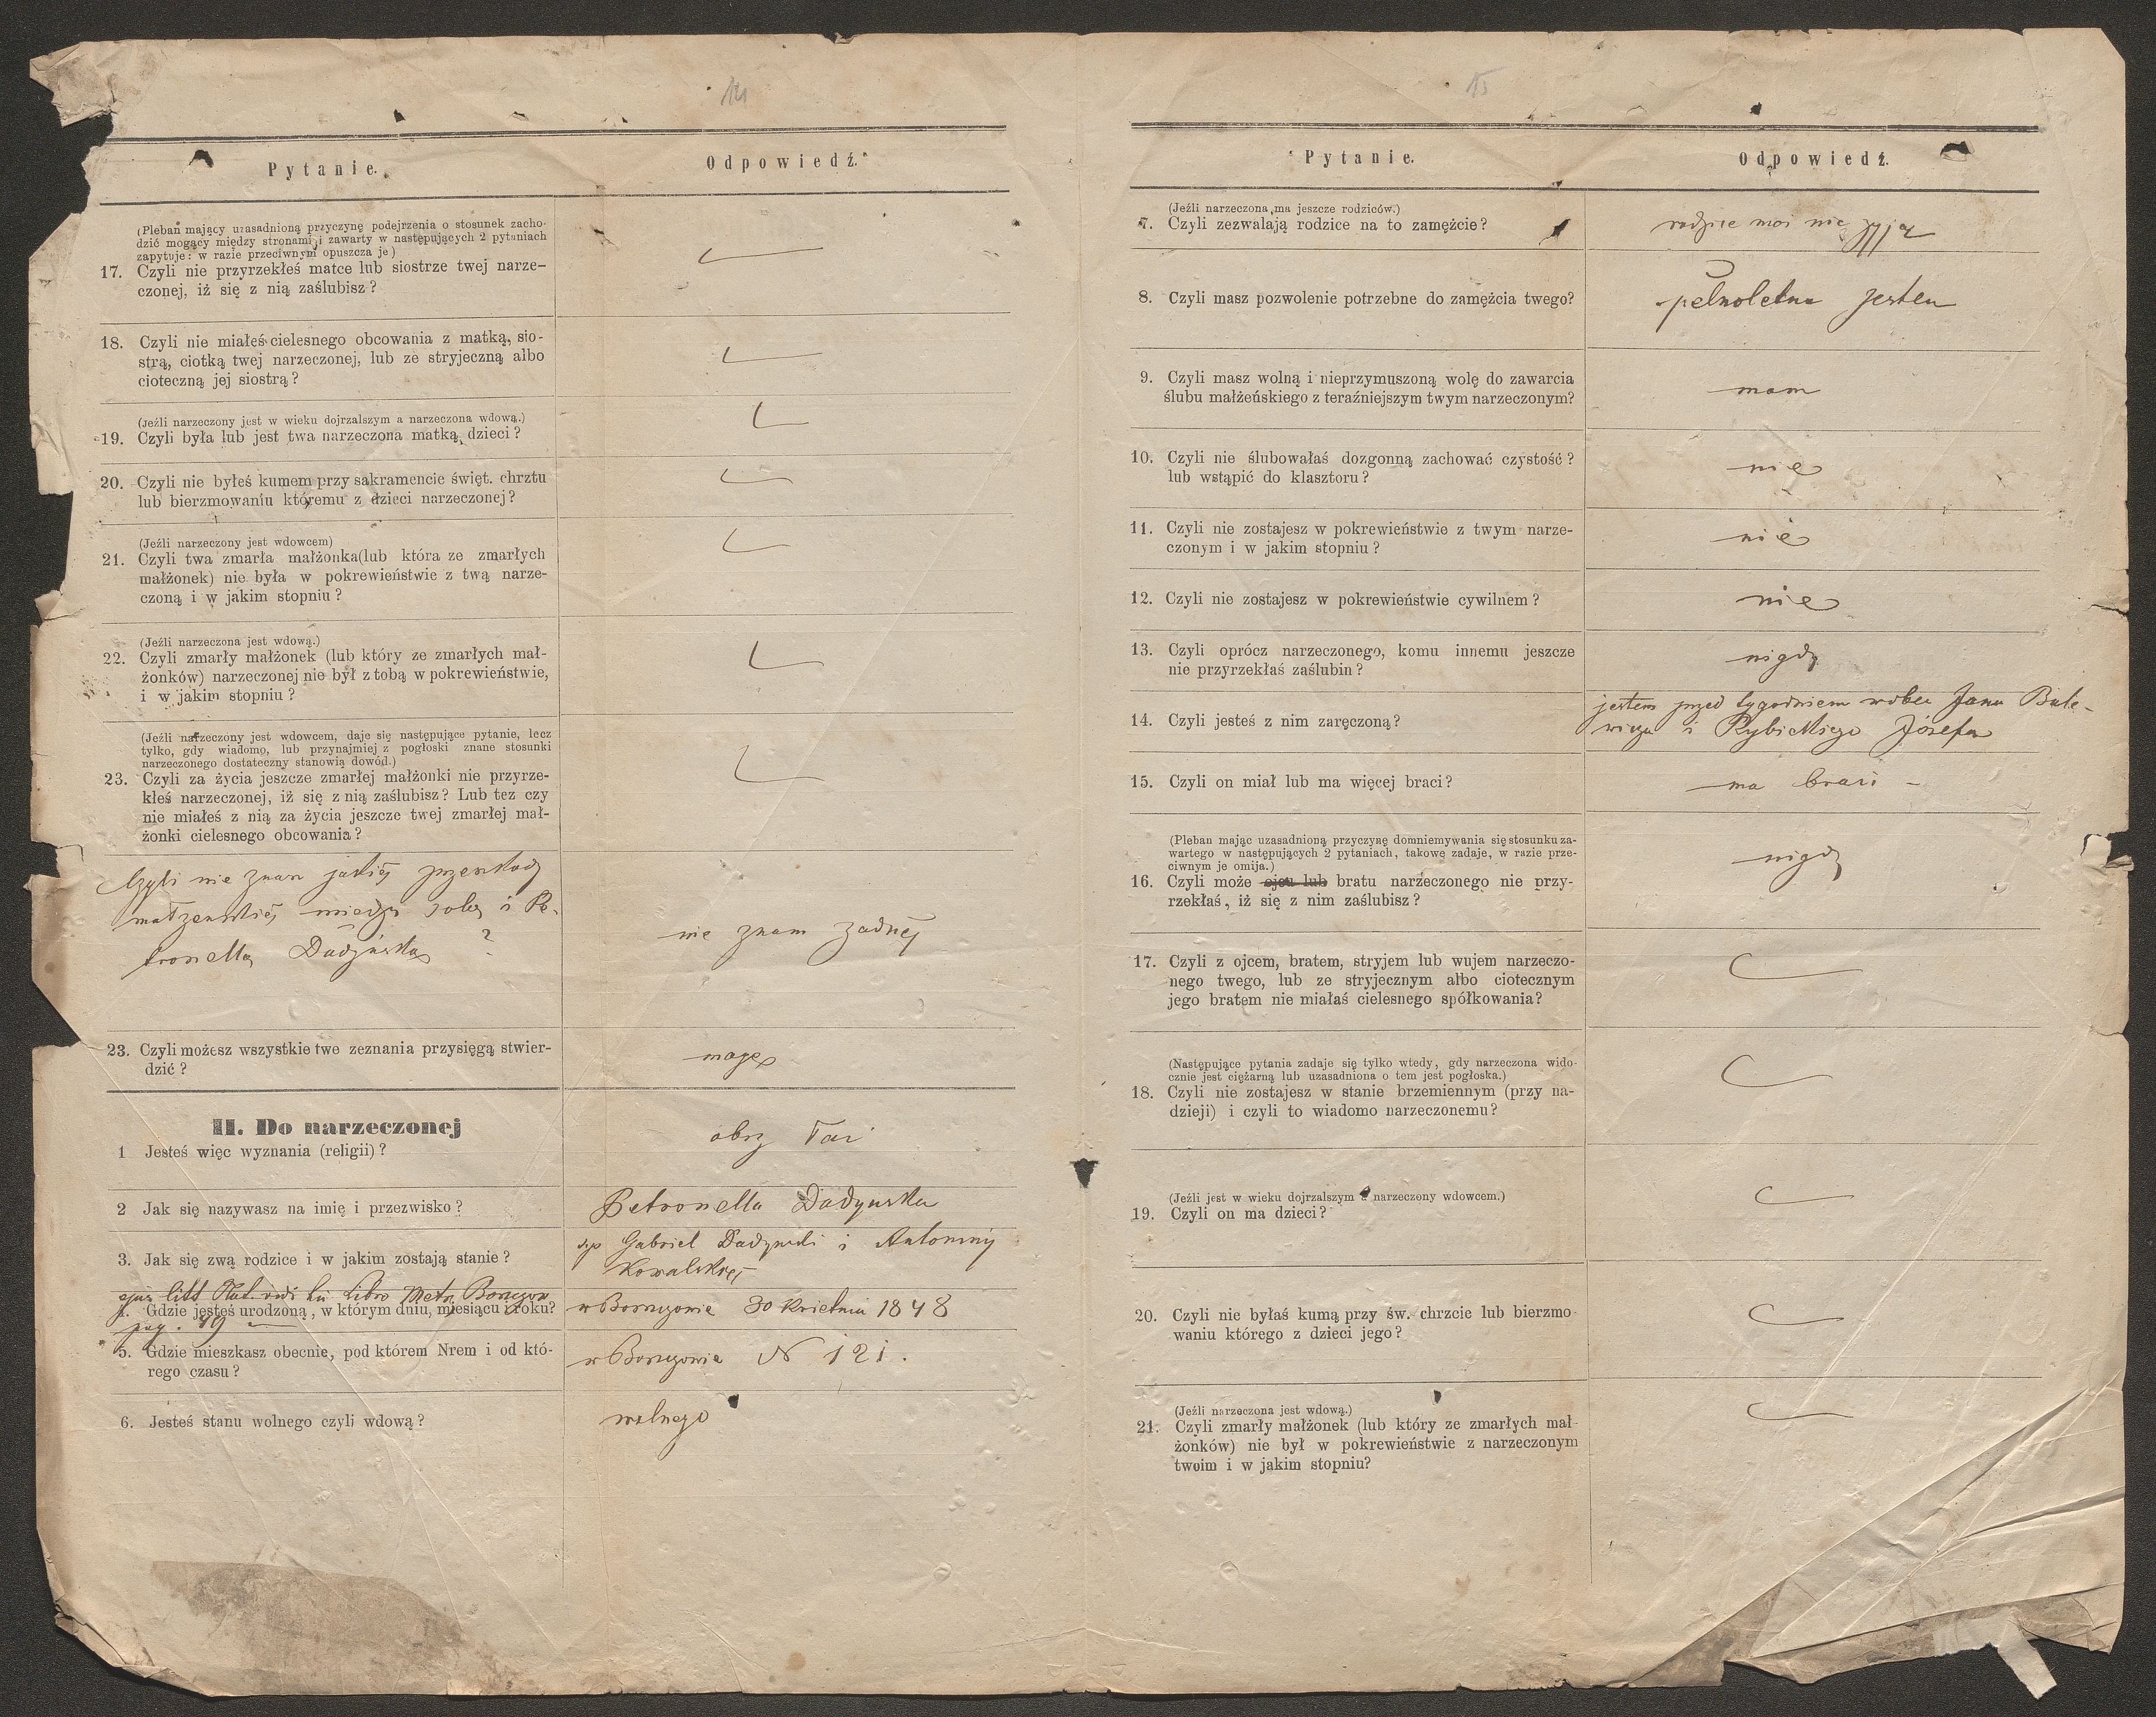 14
Pytanie.
Odpowiedź.
(Pleban mający uzasadnioną przyczynę podejrzenia o stosunek zacho-
dzić mogący między stronami, i zawarty w następujących 2 pytaniach
zapytuje: w razie przeciwnym opuszcza je)
17. Czyli nie przyrzekłeś matce lub siostrze twej narze-
czonej, iż się z nią zaślubisz?
18. Czyli nie miałeś cielesnego obcowania z matką, sio-
strą, ciotką twej narzeczonej, lub ze stryjeczną albo
cioteczną jej siostrą?
(Jeźli narzeczony jest w wieku dojrzalszym a narzeczona wdową.)
19. Czyli była lub jest twa narzeczona matką dzieci?
20. Czyli nie byłeś kumem przy sakramencie święt. chrztu
lub bierzmowaniu któremu z dzieci narzeczonej?
(Jeźli narzeczony jest wdowcem)
21. Czyli twa zmarła małżonka(lub która ze zmarłych
małżonek) nie była w pokrewieństwie z twą narze-
czoną i w jakim stopniu?
(Jeźli narzeczona jest wdową.)
22. Czyli zmarły małżonek (lub który ze zmarłych mał-
żonków) narzeczonej nie był z tobą w pokrewieństwie,
i w jakim stopniu?
(Jeźli narzeczony jest wdowcem, daje się następujące pytanie, lecz
tylko, gdy wiadomo, lub przynajmiej z pogłoski znane stosunki
narzeczonego dostateczny stanowią dowód.)
23. Czyli za życia jeszcze zmarłej małżonki nie przyrze-
kłeś narzeczonej, iż się z nią zaślubisz? Lub tez czy
nie miałeś z nią za życia jeszcze twej zmarłej mał-
żonki cielesnego obcowania?
Czyli nie znasz jakiéj przeszkody
małżeńskiéj między sobą i Pe-
tronellą Dadzińską ?
nie znam żadnéj
23. Czyli możesz wszystkie twe zeznania przysięgą stwier-
dzić?
mogę
II. Do narzeczonej
1 Jesteś więc wyznania (religii)?
obrz łaci
2 Jak się nazywasz na imię i przezwisko?
Petronella Dadzynska
3. Jak się zwą rodzice i w jakim zostają stanie?
śp Gabriel Dadzynski i Antoniny
Kowalskiéj
Libro Metr.
4. Gdzie jesteś urodzoną, w którym dniu, miesiącu i roku?
30 Kwietnia 1848
pag. 49
5. Gdzie mieszkasz obecnie, pod którem Nrem i od któ-
rego czasu?
N 121.
6. Jesteś stanu wolnego czyli wdową?
wolnego
15
Pytanie.
Odpowiedź.
(Jeźli narzeczona ma jeszcze rodziców.)
7. Czyli zezwalają rodzice na to zamężcie?
rodzice moi nie żyją
8. Czyli masz pozwolenie potrzebne do zamężcia twego?
pełnoletna jestem
9. Czyli masz wolną i nieprzymuszoną wolę do zawarcia
ślubu małżeńskiego z teraźniejszym twym narzeczonym?
mam
10. Czyli nie ślubowałaś dozgonną zachować czystość?
lub wstąpić do klasztoru?
nie
11. Czyli nie zostajesz w pokrewieństwie z twym narze-
czonym i w jakim stopniu?
nie
12. Czyli nie zostajesz w pokrewieństwie cywilnem?
nie
13. Czyli oprócz narzeczonego, komu innemu jeszcze
nie przyrzekłaś zaślubin?
nigdy
14. Czyli jesteś z nim zaręczoną?
jestem przed tygodniem wobec Jana Bale-
wicza i Rybickiego Józefa
15. Czyli on miał lub ma więcej braci?
ma braci –
(Pleban mając uzasadnioną przyczynę domniemywania się stosunku za-
wartego w następujących 2 pytaniach, takowe zadaje, w razie prze-
ciwnym je omija.)
16. Czyli może ojcu lub bratu narzeczonego nie przy-
rzekłaś, iż się z nim zaślubisz?
nigdy
17. Czyli z ojcem, bratem, stryjem lub wujem narzeczo-
nego twego, lub ze stryjecznym albo ciotecznym
jego bratem nie miałaś cielesnego spółkowania?
(Następujące pytania zadaje się tylko wtedy, gdy narzeczona wido-
cznie jest ciężarną lub uzasadniona o tem jest pogłoska.)
18. Czyli nie zostajesz w stanie brzemiennym (przy na-
dzieji) i czyli to wiadomo narzeczonemu?
(Jeźli jest w wieku dojrzalszym a narzeczony wdowcem.)
19. Czyli on ma dzieci?
20. Czyli nie byłaś kumą przy św. chrzcie lub bierzmo-
waniu którego z dzieci jego?
(Jeźli narzeczona jest wdową.)
21. Czyli zmarły małżonek (lub który ze zmarłych mał-
żonków) nie był w pokrewieństwie z narzeczonym
twoim i w jakim stopniu?